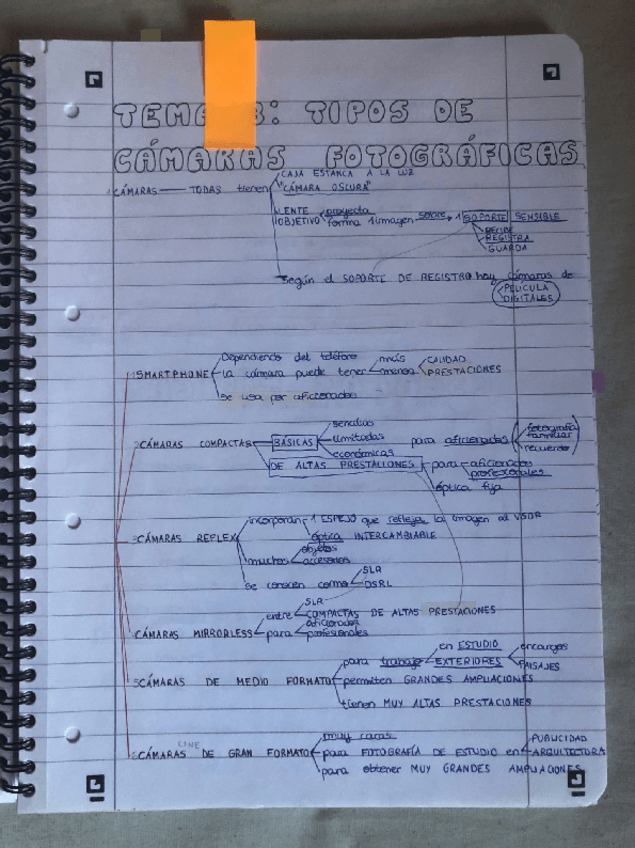 TEMA 3: TIPOS DE
CÁMARAS FOTOGRÁFICAS
CÁMARAS — TODAS tienen
CAJA ESTANCA A LA LUZ
"CÁMARA OSCURA"
LENTE proyecta
OBJETIVO forma 1 imagen sobre 1 SOPORTE SENSIBLE
RECIBE
REGISTRA
GUARDA
según el SOPORTE DE REGISTRO hay cámaras de
PELICULA
DIGITALES
1 SMARTPHONE
Dependiendo del teléfono más CALIDAD
la cámara puede tener menos PRESTACIONES
se usa por aficionados
2 CÁMARAS COMPACTAS
BÁSICAS
sencillas
limitadas
económicas
para aficionados
fotografía
familiar
recuerdo
DE ALTAS PRESTACIONES
para aficionados
profesionales
óptica fija
3 CÁMARAS REFLEX
incorporan 1 ESPEJO que refleja la imagen al VISOR
óptica INTERCAMBIABLE
muchos objetos
accesorios
se conocen como SLR
DSRL
4 CÁMARAS MIRRORLESS
entre SLR
COMPACTAS DE ALTAS PRESTACIONES
para aficionados
profesionales
5 CÁMARAS DE MEDIO FORMATO
para trabajo en ESTUDIO
EXTERIORES
encargos
PAISAJES
permiten GRANDES AMPLIACIONES
tienen MUY ALTAS PRESTACIONES
6 CÁMARAS CINE DE GRAN FORMATO
muy caras
para FOTOGRAFÍA DE ESTUDIO en PUBLICIDAD
ARQUITECTURA
para obtener MUY GRANDES AMPLIACIONES